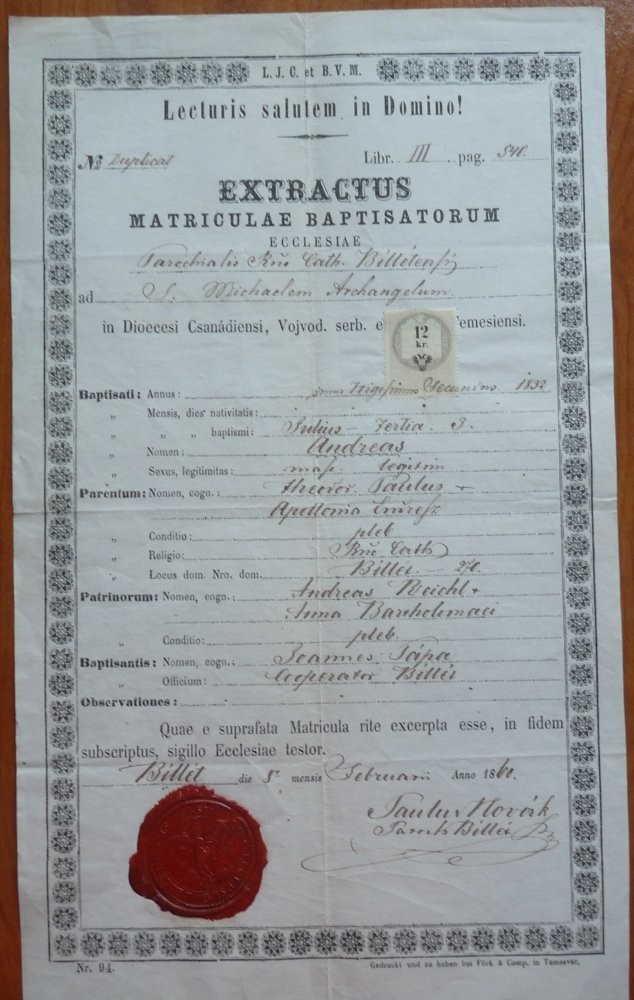 L. J. C. et B. V. M.
Lecturis salutem in Domino!
No Duplicat Libr. III pag. 546.
EXTRACTUS
MATRICULAE BAPTISATORUM
ECCLESIAE
Parochialis Rm̃ Cath. Billétensis
ad S. Michaelem Archangelum
in Dioecesi Csanádiensi, Vojvod. serb. e Temesiensi.
12
kr.
Baptisati: Annus: Trigesimus Secundus 1832
„ Mensis, dies nativitatis:
„ „ „ baptismi: Julius - tertia 3.
„ Nomen: Andreas
„ Sexus, legitimitas: masc legitim
Parentum: Nomen, cogn.: Paulus
Apollonia
„ Conditio: pleb
„ Religio: Rm̃ Cath
„ Locus dom. Nro. dom. Billét
Patrinorum: Nomen, cogn.: Andreas Reichl +
Anna Bartholomaei
„ Conditio: pleb.
Baptisantis: Nomen, cogn.: Joannes Pápa
„ Officium: Cooperator Billét
Observationes:
Quae e suprafata Matricula rite excerpta esse, in fidem
subscriptus, sigillo Ecclesiae testor.
Billét die 8a mensis Februarii Anno 1860.
Paulus Novák
Paroch Billét
Nr. 94.
Gedruckt und zu haben bei Förk & Comp. in Temesvar.